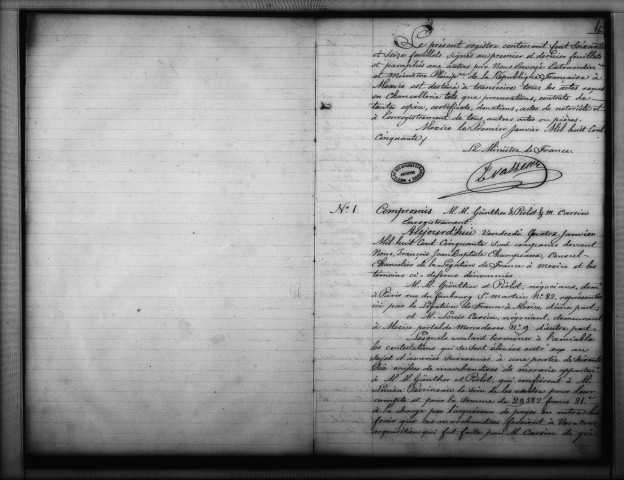 Le présent registre contenant Cent Soixante
et Seize feuillets signés au premier et dernier feuillets
et paraphés aux autres par Nous Envoyé Extraordin.re
et Ministre Plénip.re de la République Française à
Mexico est destiné à transcrire tous les actes reçus
en Chancellerie tels que procurations, contrats de
toutes espèce, certificats, donations, actes de notoriété et
à l'enregistrement de tous autres actes ou pièces.
Mexico le Premier Janvier Mil huit Cent
Cinquante.
Le Ministre de France
Levasseur
N.º 1. Compromis M.M. Günther & Rélot & M. Carsin
Enregistrement.
Aujourd'hui Vendredi Quatre Janvier
Mil huit Cent Cinquante sont comparus devant
Nous, François Jean Baptiste Champeaux, Consul-
Chancelier de la Légation de France à Mexico et les
témoins ci-dessous dénommés
M.M. Günther et Rélot, négocians, dem.t
à Paris rue du faubourg S.t Martin N.º 82, représentés
ici par la Légation de France à Mexico, d'une part,
et M. Louis Carsin, négociant, demeurant
à Mexico portal de Mercaderes N.º 9 d'autre part.
Lesquels voulant terminer à l'amiable
les contestations qui se sont élevées entr'eux au
sujet d'avaries survenues à une partie de soixante
caisses de marchandises de mercerie apparten.t
à M.M. Günther et Rélot, qui confièrent à M.
Lucien Perrineau le soin de les vendre pour leur
compte et pour la somme de 29,582 francs 21.c
à la charge par l'acquéreur de payer en outre les
frais que ces marchandises feraient à Vera Cruz
acquisition qui fut faite par M. Carsin de gré